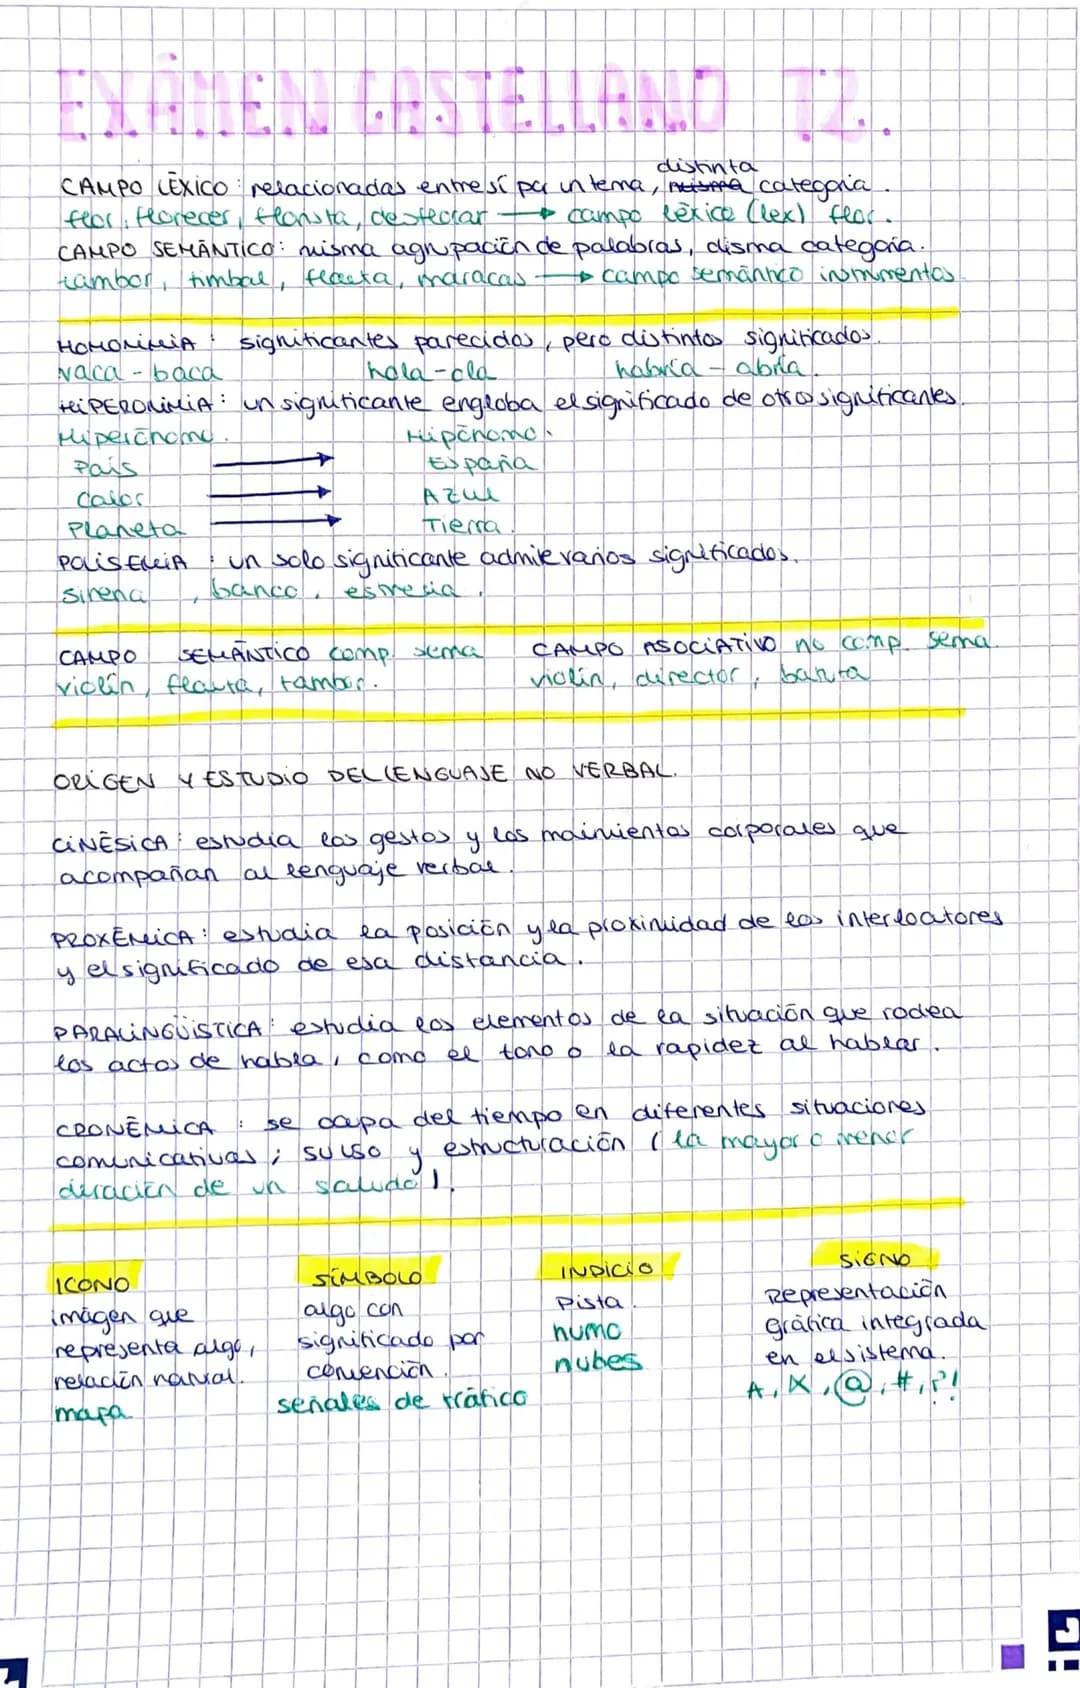 EXÁMEN CASTELLANO T2.
distinta
CAMPO LÉXICO: relacionadas entre sí por un tema, misma categoria.
flor, florecer, florista, desflorar → campo léxico (lex) flor.
CAMPO SEMÁNTICO: misma agrupación de palabras, misma categoría.
tambor, timbal, flauta, maracas → campo semántico instrumentos
HOMONIMIA: significantes parecidos, pero distintos significados.
vaca - baca hola - ola habría - abría.
HIPERONIMIA: un significante engloba el significado de otros significantes.
Hiperónomo. Hipónomo.
País → España
Color → Azul
Planeta → Tierra.
POLISEMIA: un solo significante admie varios significados.
sirena, banco, estrella.
CAMPO SEMÁNTICO comp. sema CAMPO ASOCIATIVO no comp. sema.
violín, flauta, tambor. violín, director, batuta
ORIGEN Y ESTUDIO DEL LENGUAJE NO VERBAL.
CINÉSICA: estudia los gestos y los movimientos corporales que
acompañan al lenguaje verbal.
PROXÉMICA: estudia la posición y la proximidad de los interlocutores
y el significado de esa distancia.
PARALINGÜISTICA: estudia los elementos de la situación que rodea
los actos de habla, como el tono o la rapidez al hablar.
CRONÉMICA: se ocupa del tiempo en diferentes situaciones
comunicativas; su uso y estructuración (la mayor o menor
duración de un saludo).
ICONO SÍMBOLO INDICIO SIGNO
imágen que algo con Pista. Representación
representa algo, significado por humo gráfica integrada
relación natural. convención. nubes en el sistema.
mapa señales de tráfico A, X, @, #, ?!